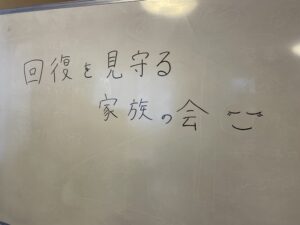 回復を見守る
家族の会